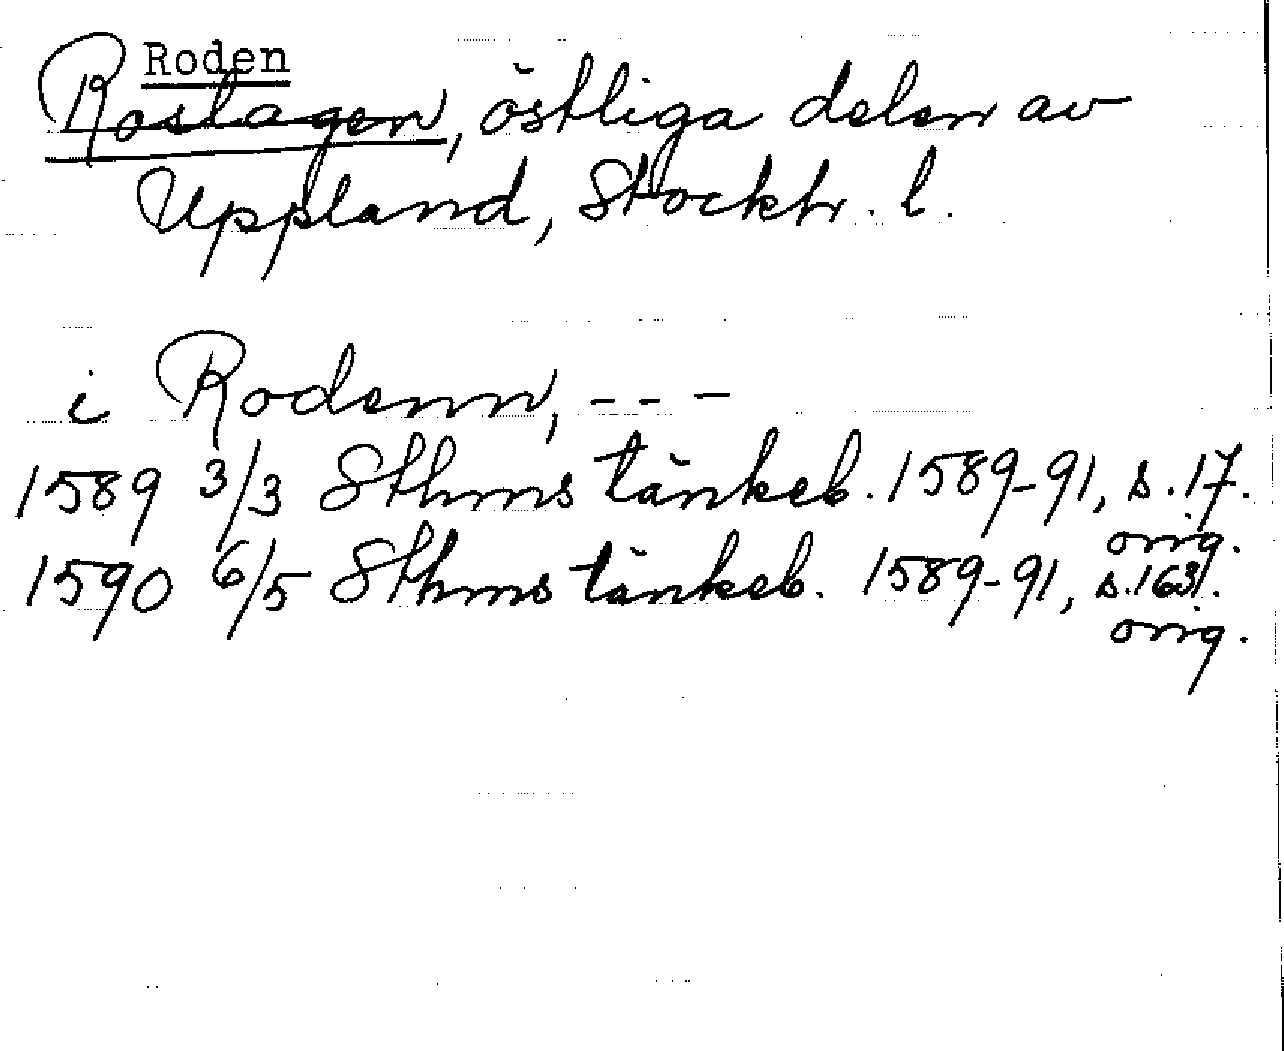 Roden
Roslagen, östliga delen av
Uppland, Stockh. l.
i Rodenn, - - -
1589 3/3 Sthms tänkeb. 1589-91, s. 17.
orig.
1590 6/5 Sthms tänkeb. 1589-91, s. 163.
orig.